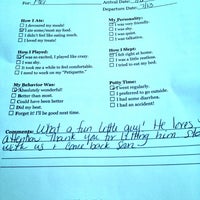 For:
Arrival Date:
Departure Date: 7/15
How I Ate:
I devoured my meals!
I ate some/most my food.
I didn't feel like eating much.
I loved my treats!
My Personality:
I was very friendly
I was shy.
I was quiet.
I was talkative.
How I Played:
I was so excited, I played like crazy.
I was shy.
It took me a while to feel comfortable.
I need to work on my "Petiquette."
How I Slept:
I felt right at home.
I was a little restless.
I tried to eat my bed.
My Behavior Was:
Absolutely wonderful!
Better than most.
Could have been better
Did my best.
Forget it! I'll be good next time.
Potty Time:
I went regularly.
I preferred to go outside.
I had some diarrhea.
I had an accident!
Comments: What a fun little guy! He loves
attention. Thank you for letting him stay
with us & come back soon.